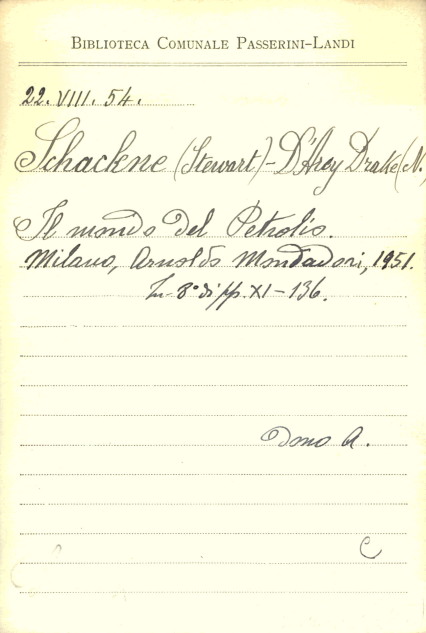 BIBLIOTECA COMUNALE PASSERINI-LANDI
22. VIII. 54.
Schackne (Stewart) - D'Arcy Drake (N.
Il mondo del Petrolio.
Milano, Arnoldo Mondadori, 1951.
In 8° di pp. XI - 136.
Dono A.
C